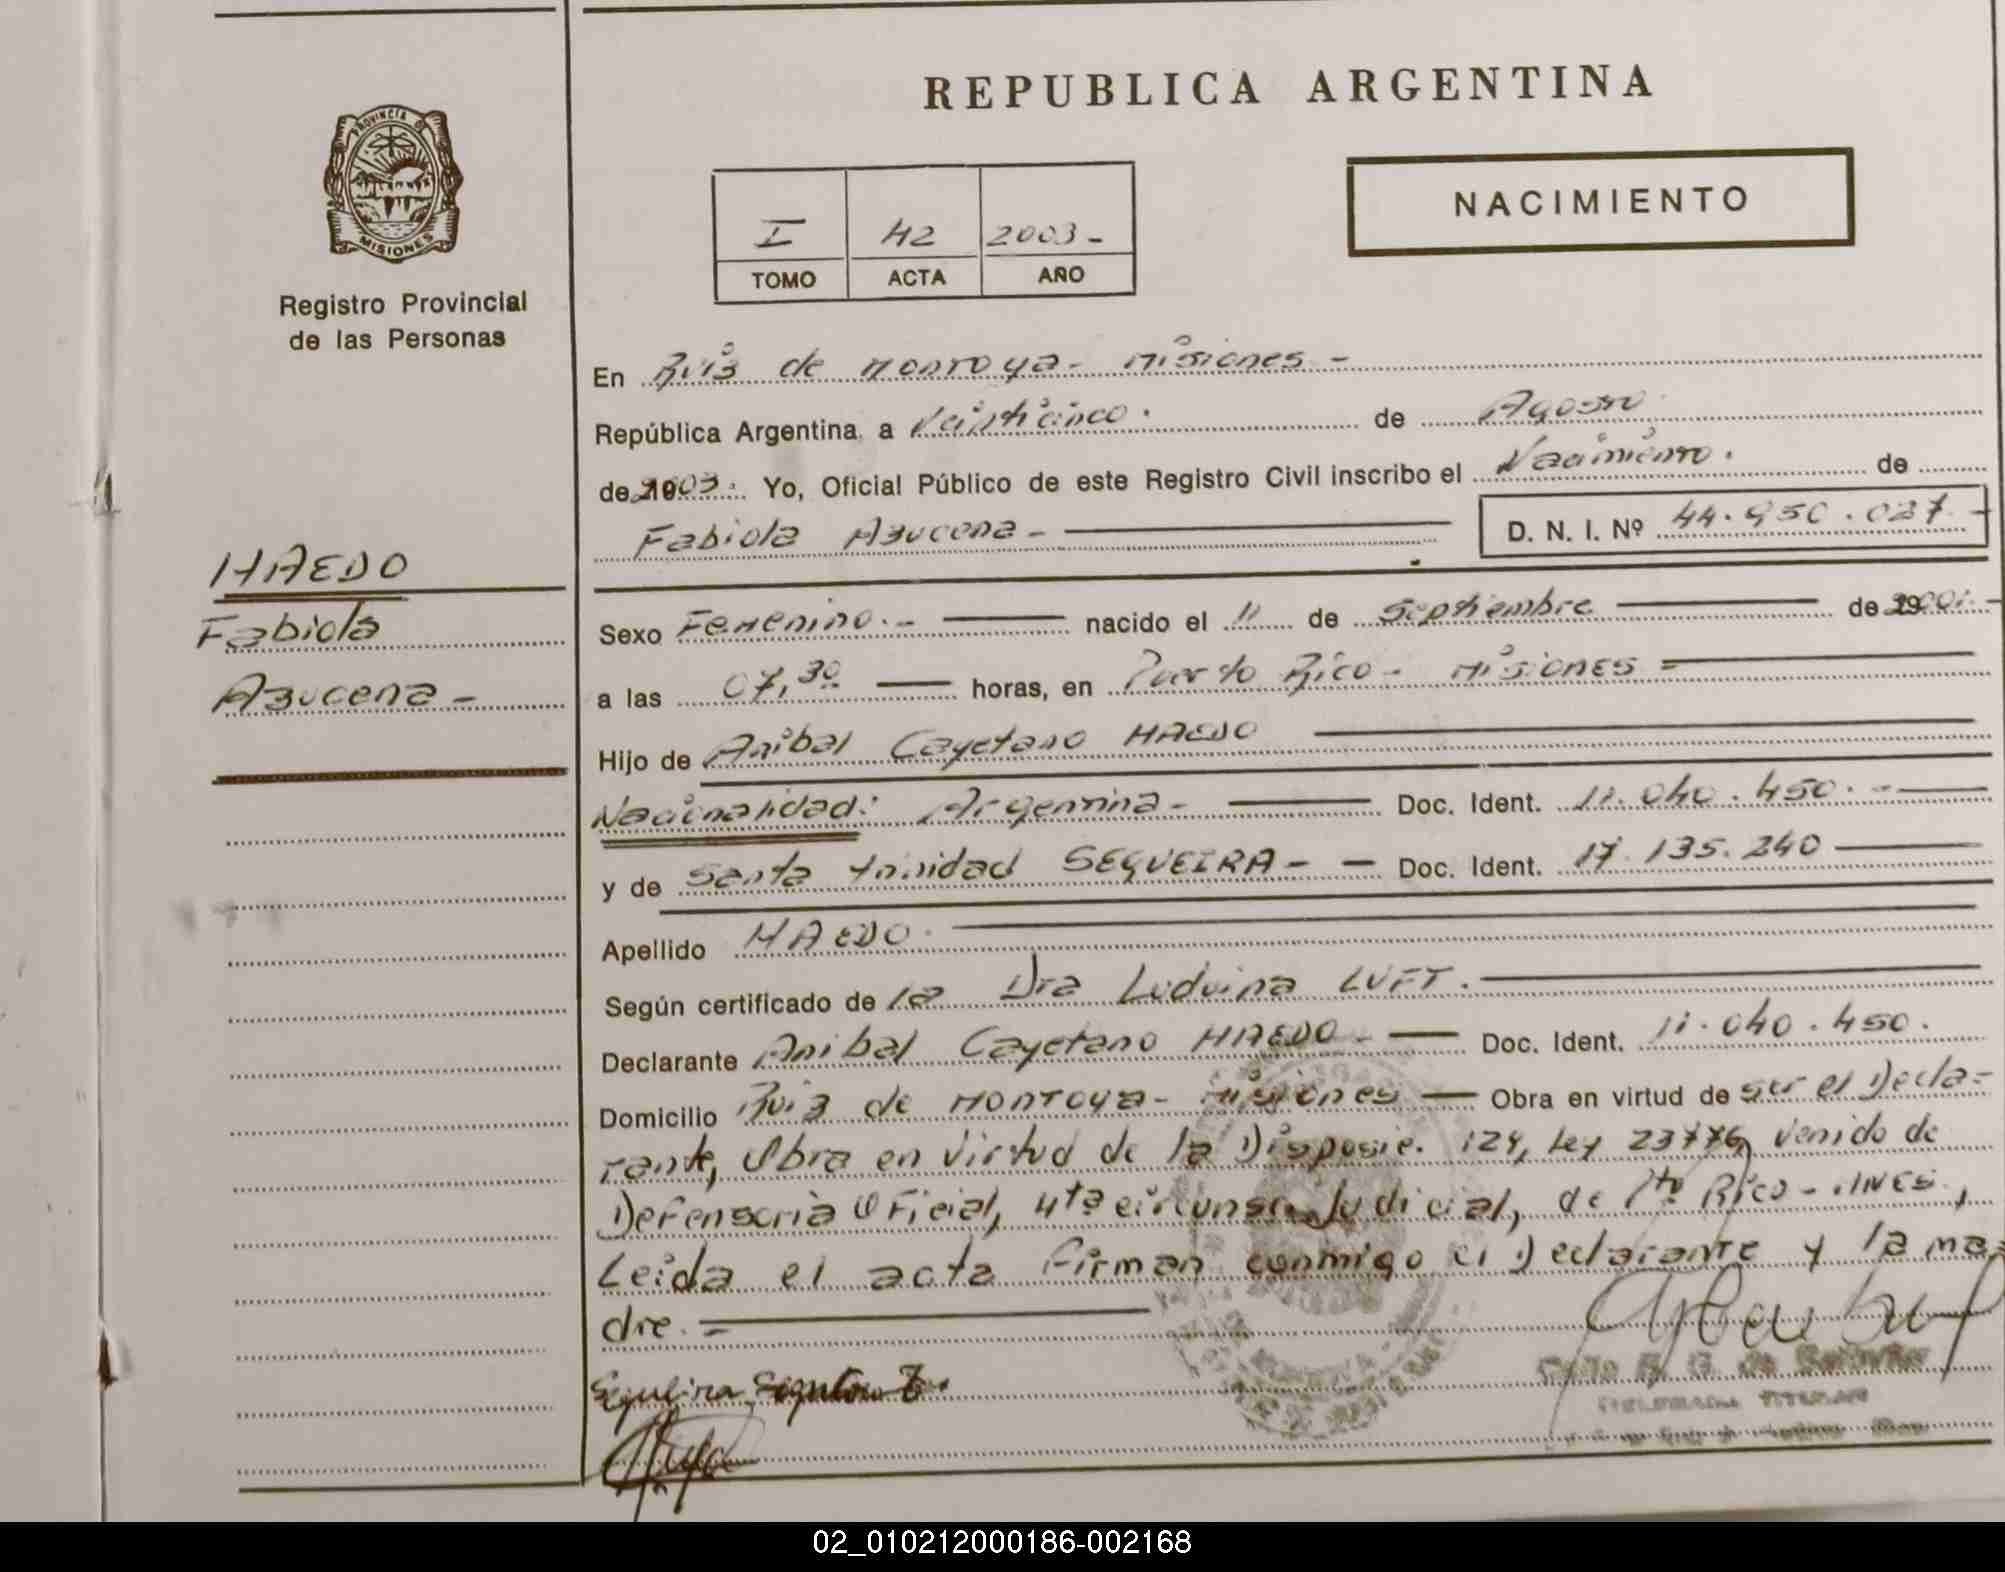 REPUBLICA ARGENTINA
PROVINCIA DE
MISIONES
Registro Provincial
de las Personas
NACIMIENTO
I 42 2003-
TOMO ACTA AÑO
En Ruiz de Montoya- Misiones -
República Argentina, a Veinticinco. de Agosto
de 2003. Yo, Oficial Público de este Registro Civil inscribo el Nacimiento. de
Fabiola Azucena - D. N. I. Nº 44.950.027-
HAEDO
Fabiola
Azucena -
Sexo Femenino.- nacido el 11 de Septiembre de 2001.-
a las 07,30 horas, en Puerto Rico - Misiones
Hijo de Anibal Cayetano HAEDO
Nacionalidad: Argentina- Doc. Ident. 11.040.450.-
y de Santa trinidad SEQUEIRA- - Doc. Ident. 17.135.240
Apellido HAEDO.
Según certificado de la Dra Luduina LUFT.
Declarante Anibal Cayetano HAEDO- Doc. Ident. 11.040.450.
Domicilio Ruiz de Montoya- Misiones Obra en virtud de ser el Decla-
rante, Obra en virtud de la Disposic. 124, Ley 23776, venido de
Defensoria Oficial, 4ta circunsc. Judicial, de Pto Rico -
Leida el acta firman conmigo el Declarante y la ma-
dre.-
Sequeira
02_010212000186-002168